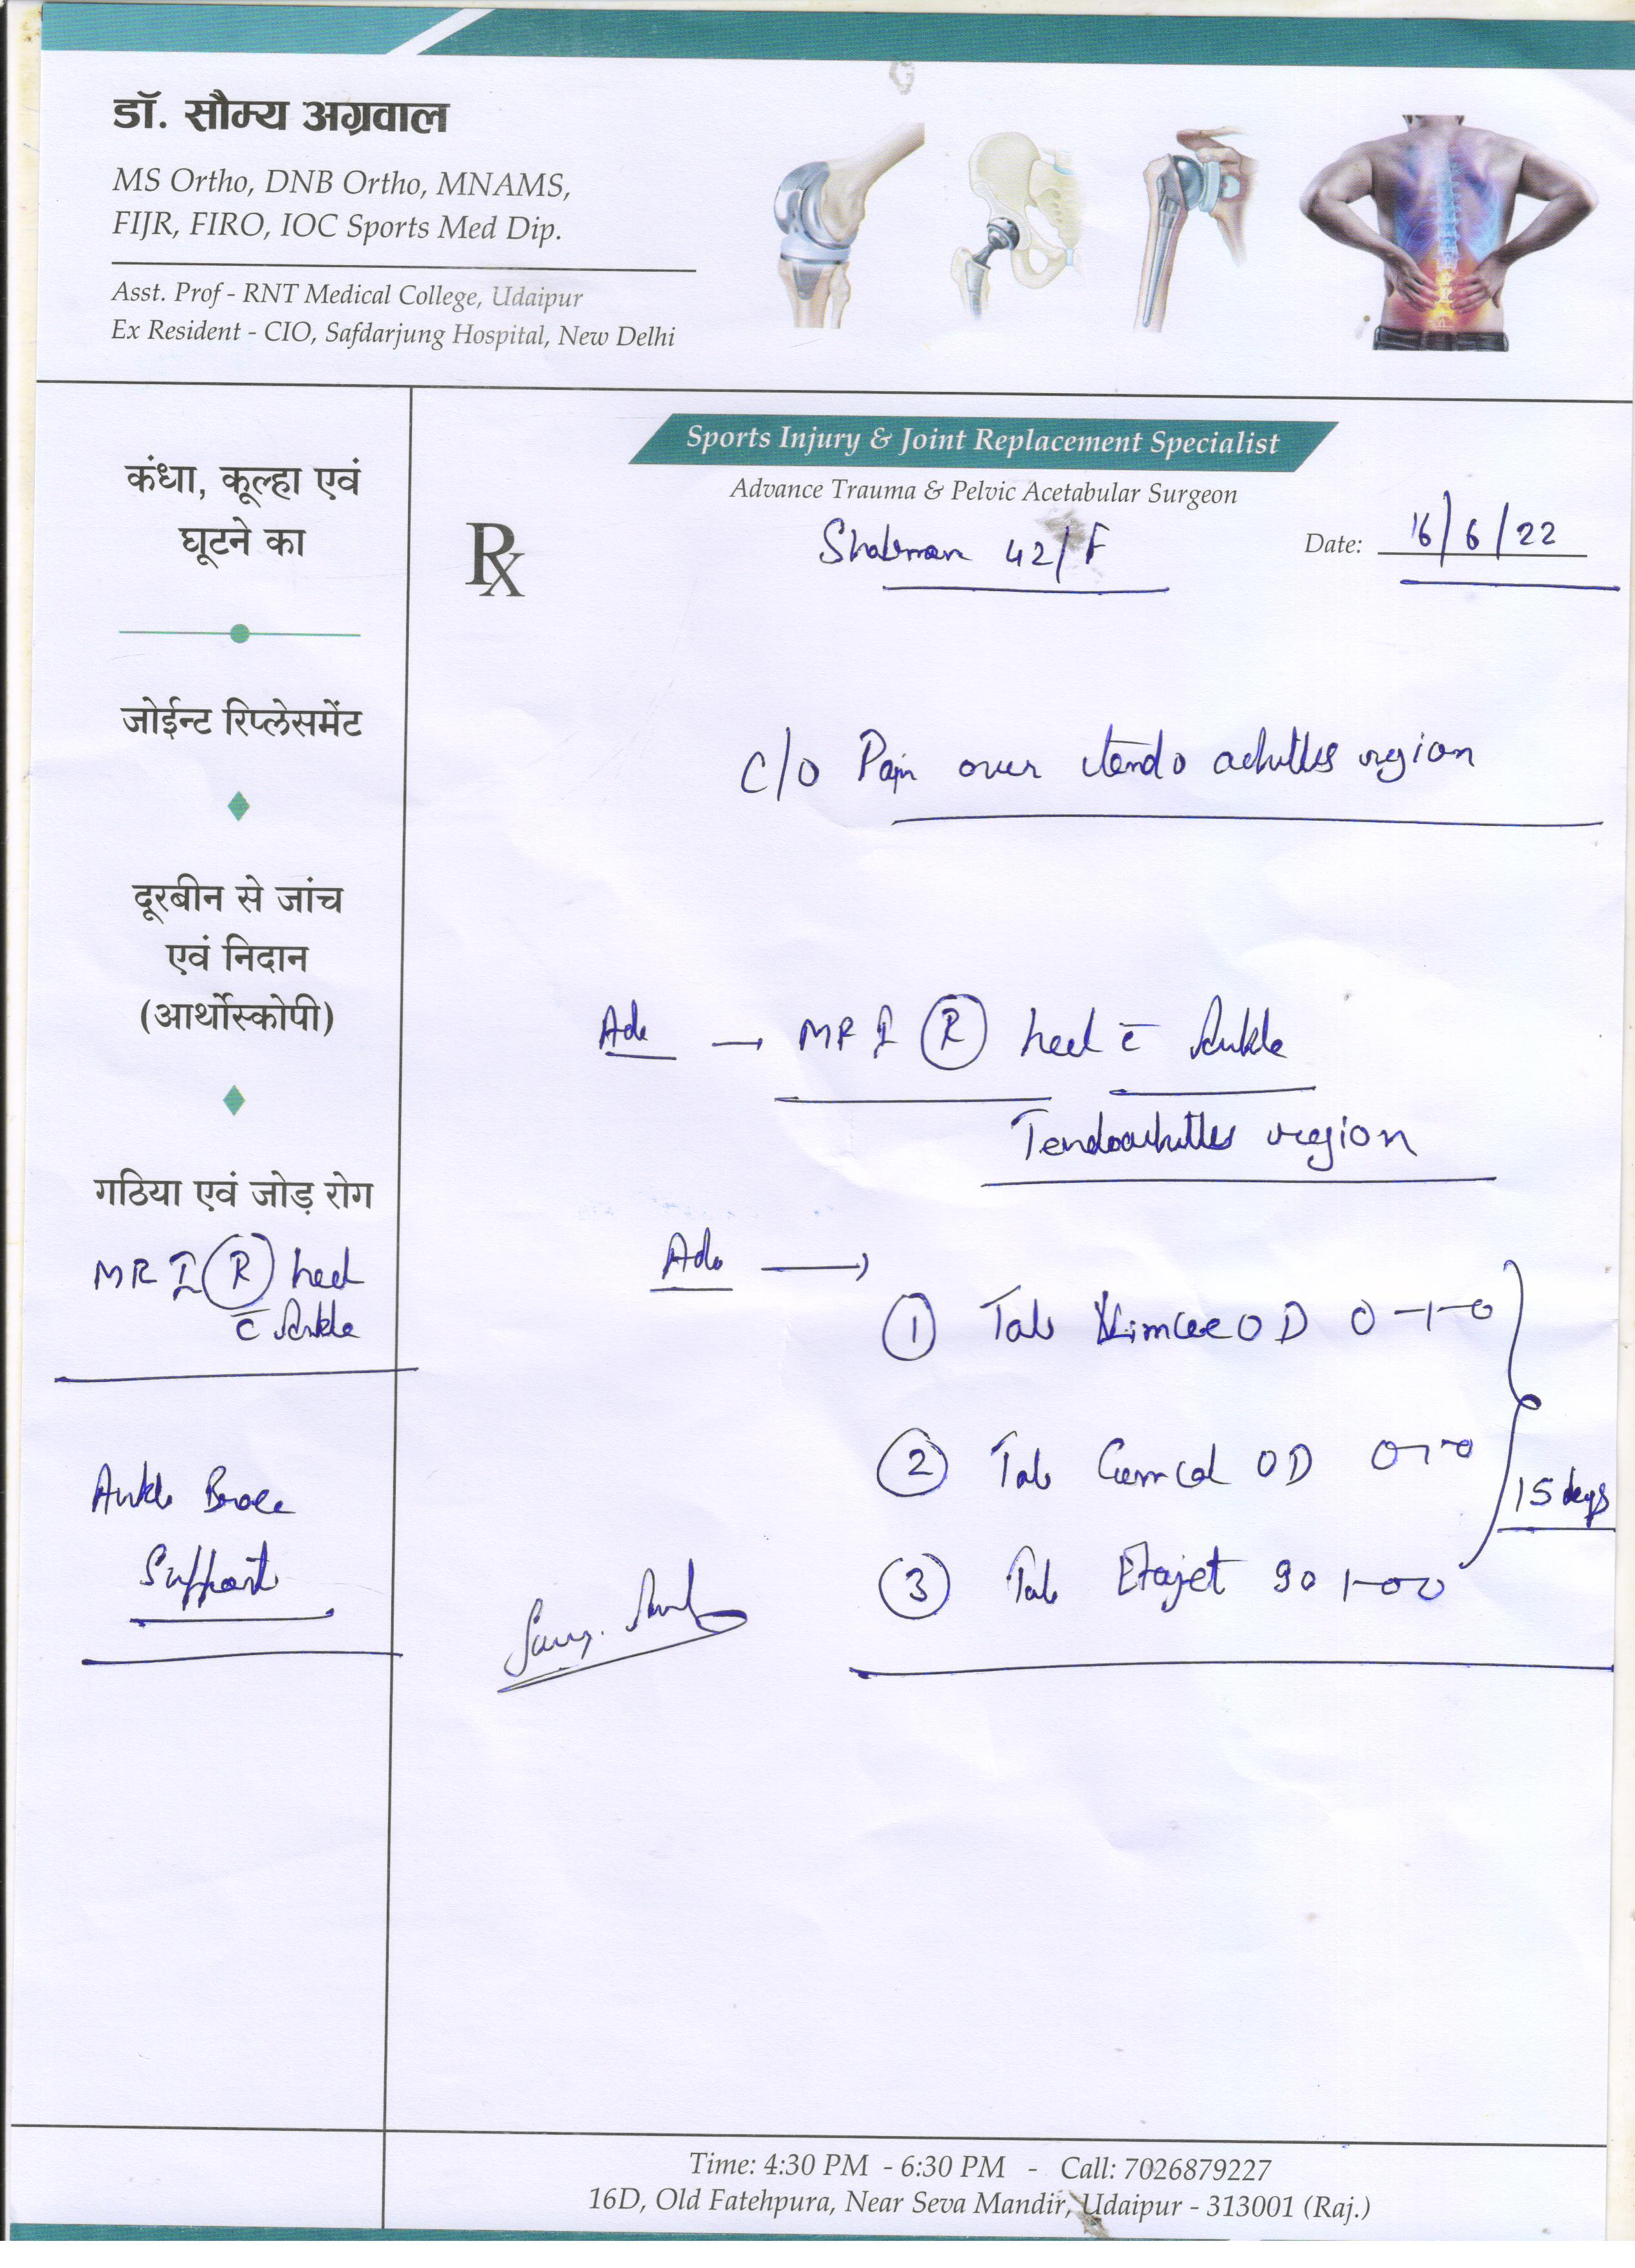 डॉ. सौम्य अग्रवाल
MS Ortho, DNB Ortho, MNAMS,
FIJR, FIRO, IOC Sports Med Dip.
Asst. Prof - RNT Medical College, Udaipur
Ex Resident - CIO, Safdarjung Hospital, New Delhi
Sports Injury & Joint Replacement Specialist
Advance Trauma & Pelvic Acetabular Surgeon
कंधा, कूल्हा एवं
घूटने का
जोईन्ट रिप्लेसमेंट
दूरबीन से जांच
एवं निदान
(आर्थोस्कोपी)
गठिया एवं जोड़ रोग
MRI R heel
c̄ Ankle
Ankle Brace
Support
Rx
42/F
Date: 16/6/22
C/O Pain over tendo achilles region
→ MRI R heel c̄ Ankle
Tendoachilles region
→
1 Tab OD 0-1-0
2 Tab OD 0-1-0
3 Tab 90 1-0-0
15 days
Time: 4:30 PM - 6:30 PM - Call: 7026879227
16D, Old Fatehpura, Near Seva Mandir, Udaipur - 313001 (Raj.)